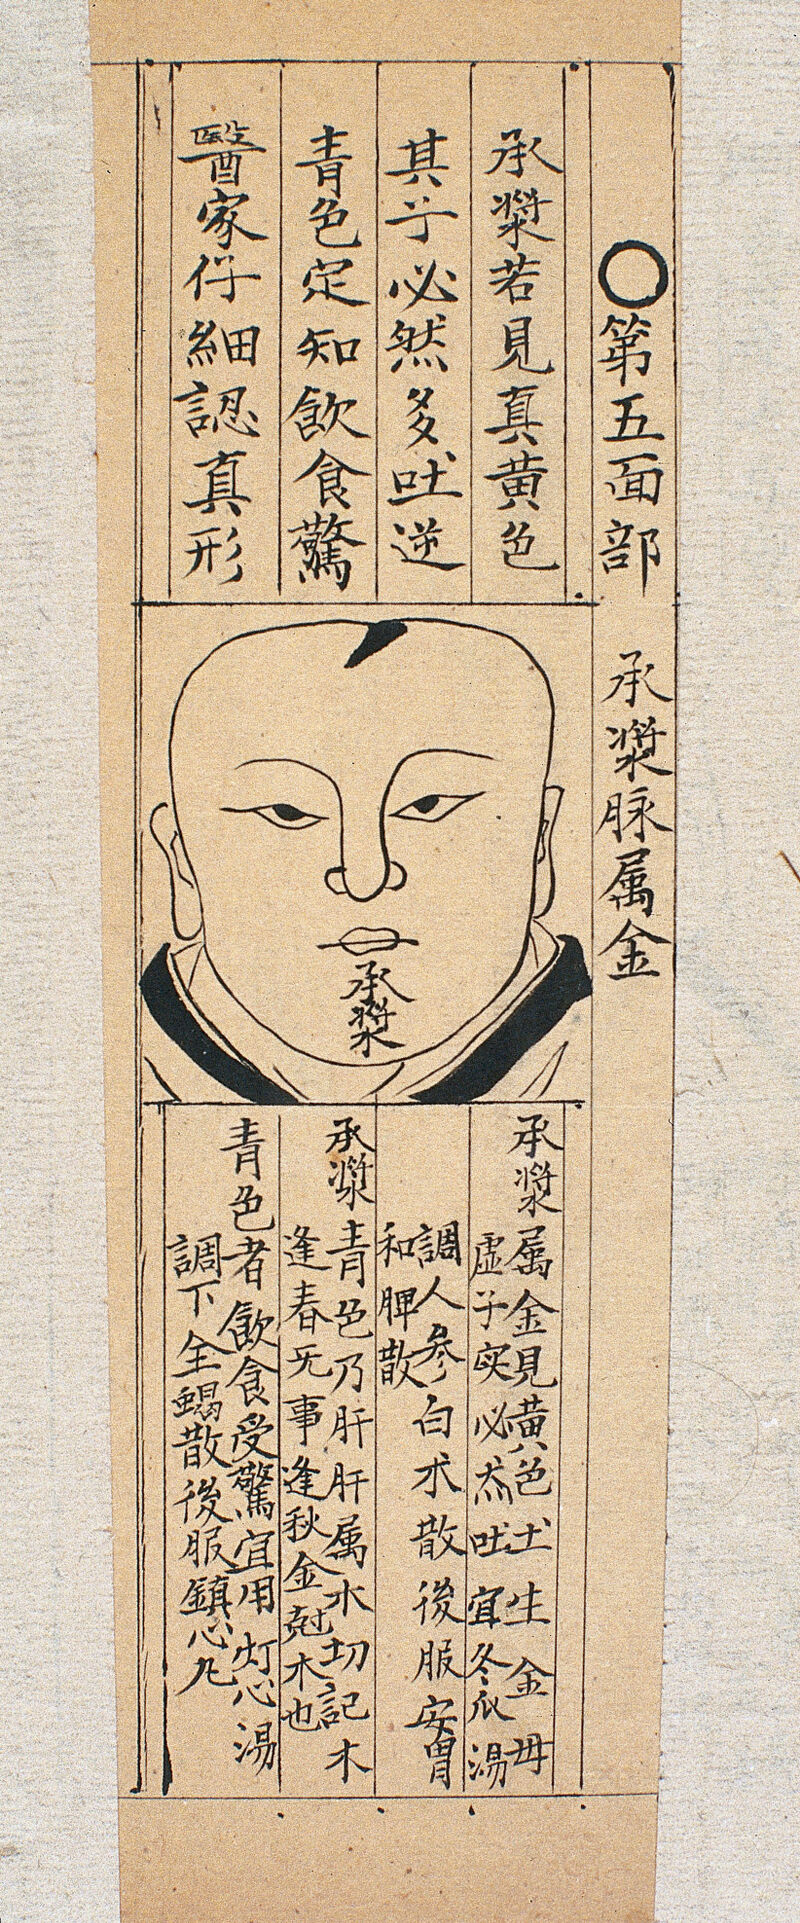 〇第五面部　承漿脉属金
承漿若見真黄色
其子必然多吐逆
青色定知飲食驚
醫家仔細認真形
承漿
承漿属金見黄色土生金毋
虚子实必然吐宜冬瓜湯
調人参白术散後服安胃
和脾散
承漿青色乃肝肝属木切記木
逢春旡事逢秋金尅木也
青色者飲食受驚宜用灯心湯
調下全蝎散後服鎮心丸